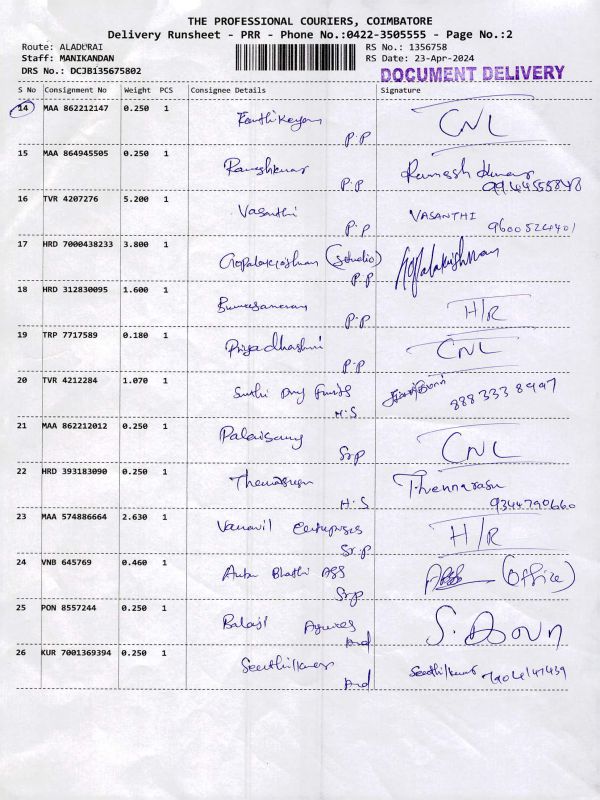 THE PROFESSIONAL COURIERS, COIMBATORE
Delivery Runsheet - PRR - Phone No.:0422-3505555 - Page No.:2
Route: ALADURAI RS No.: 1356758
Staff: MANIKANDAN RS Date: 23-Apr-2024
DRS No.: DCJB135675802 DOCUMENT DELIVERY
S No Consignment No Weight PCS Consignee Details Signature
14 MAA 862212147 0.250 1 CNL
P.P
15 MAA 864945505 0.250 1 Rameshkumar Ramesh Kumar
P.P
16 TVR 4207276 5.200 1 Vasanthi VASANTHI
P.P 9600524401
17 HRD 7000438233 3.800 1 Gopalakrishnan (Studio) Gopalakrishnan
P.P
18 HRD 312830095 1.600 1 H/R
P.P
19 TRP 7717589 0.180 1 Priyadharshini CNL
P.P
20 TVR 4212284 1.070 1 888 333 8947
H.S
21 MAA 862212012 0.250 1 CNL
Srp
22 HRD 393183090 0.250 1 Thennarasu
H.S 9344790660
23 MAA 574886664 2.630 1 Vanavil Enterprises H/R
Sr.p
24 VNB 645769 0.460 1 (Office)
Srp
25 PON 8557244 0.250 1 Balaji Agencies
26 KUR 7001369394 0.250 1 Senthilkumar Senthilkumar